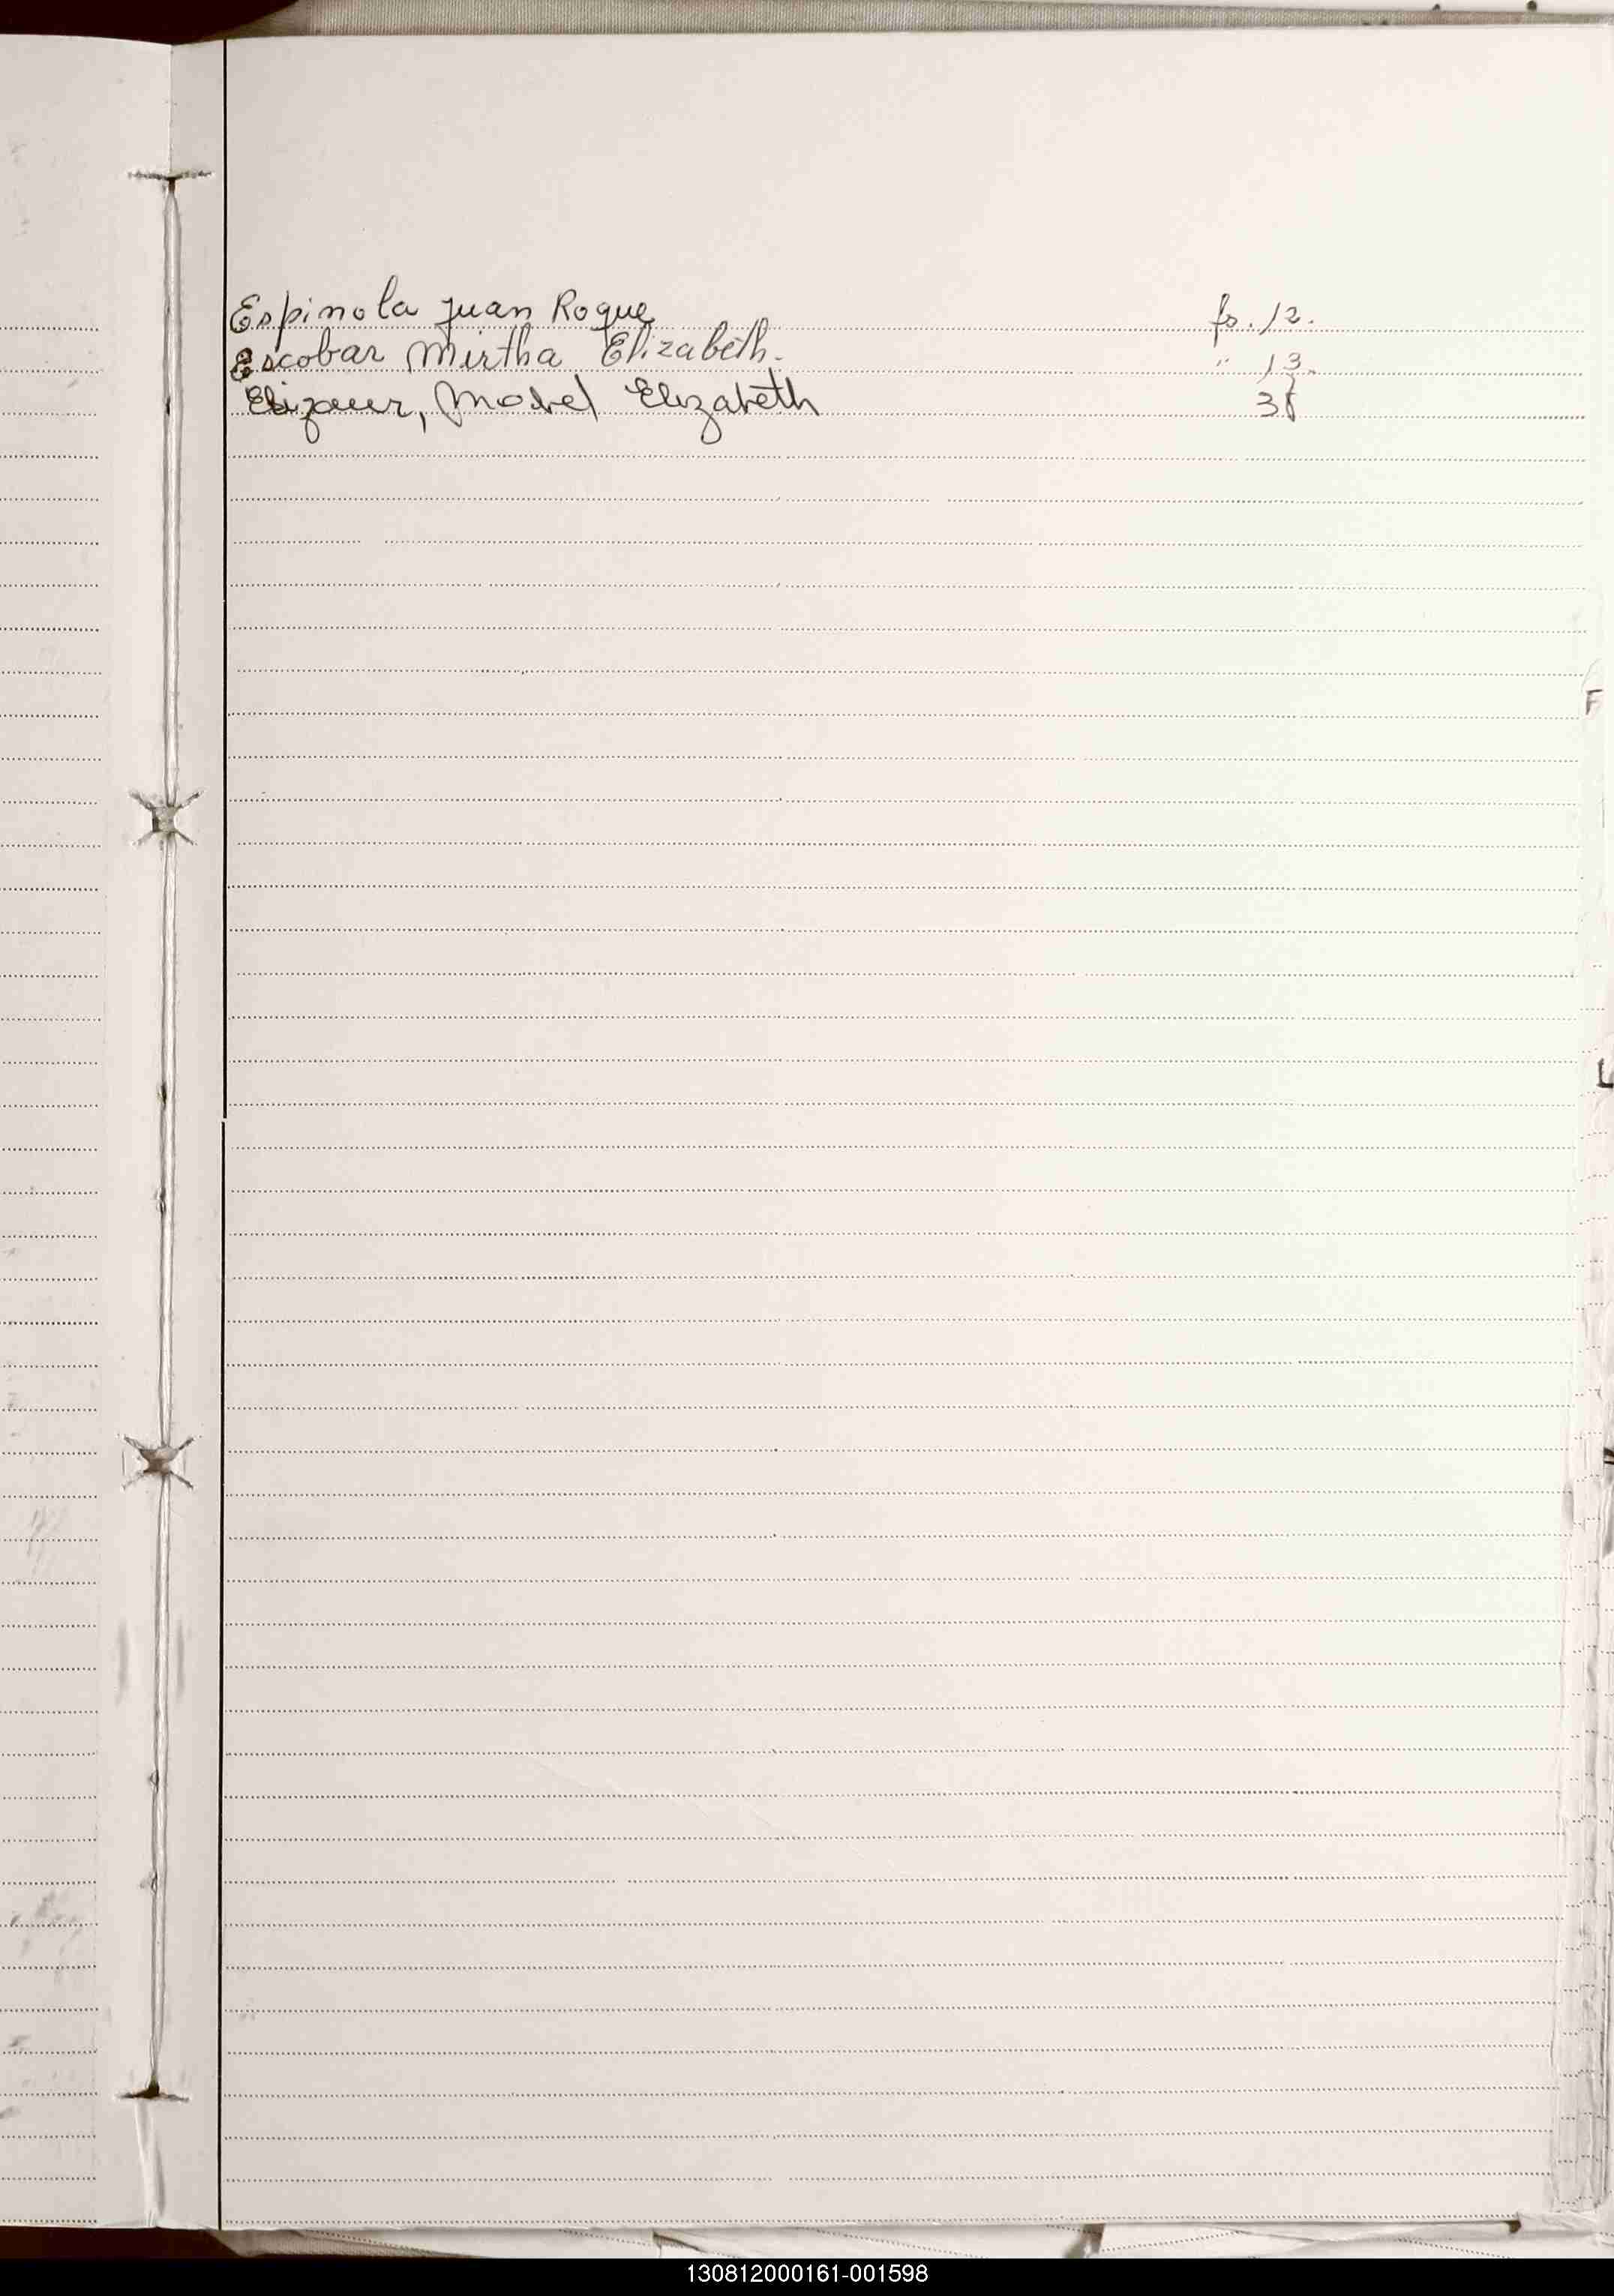 Espinola Juan Roque fs. 12.
Escobar Mirtha Elizabeth. " 13.
Mabel Elizabeth
F
L
130812000161-001598